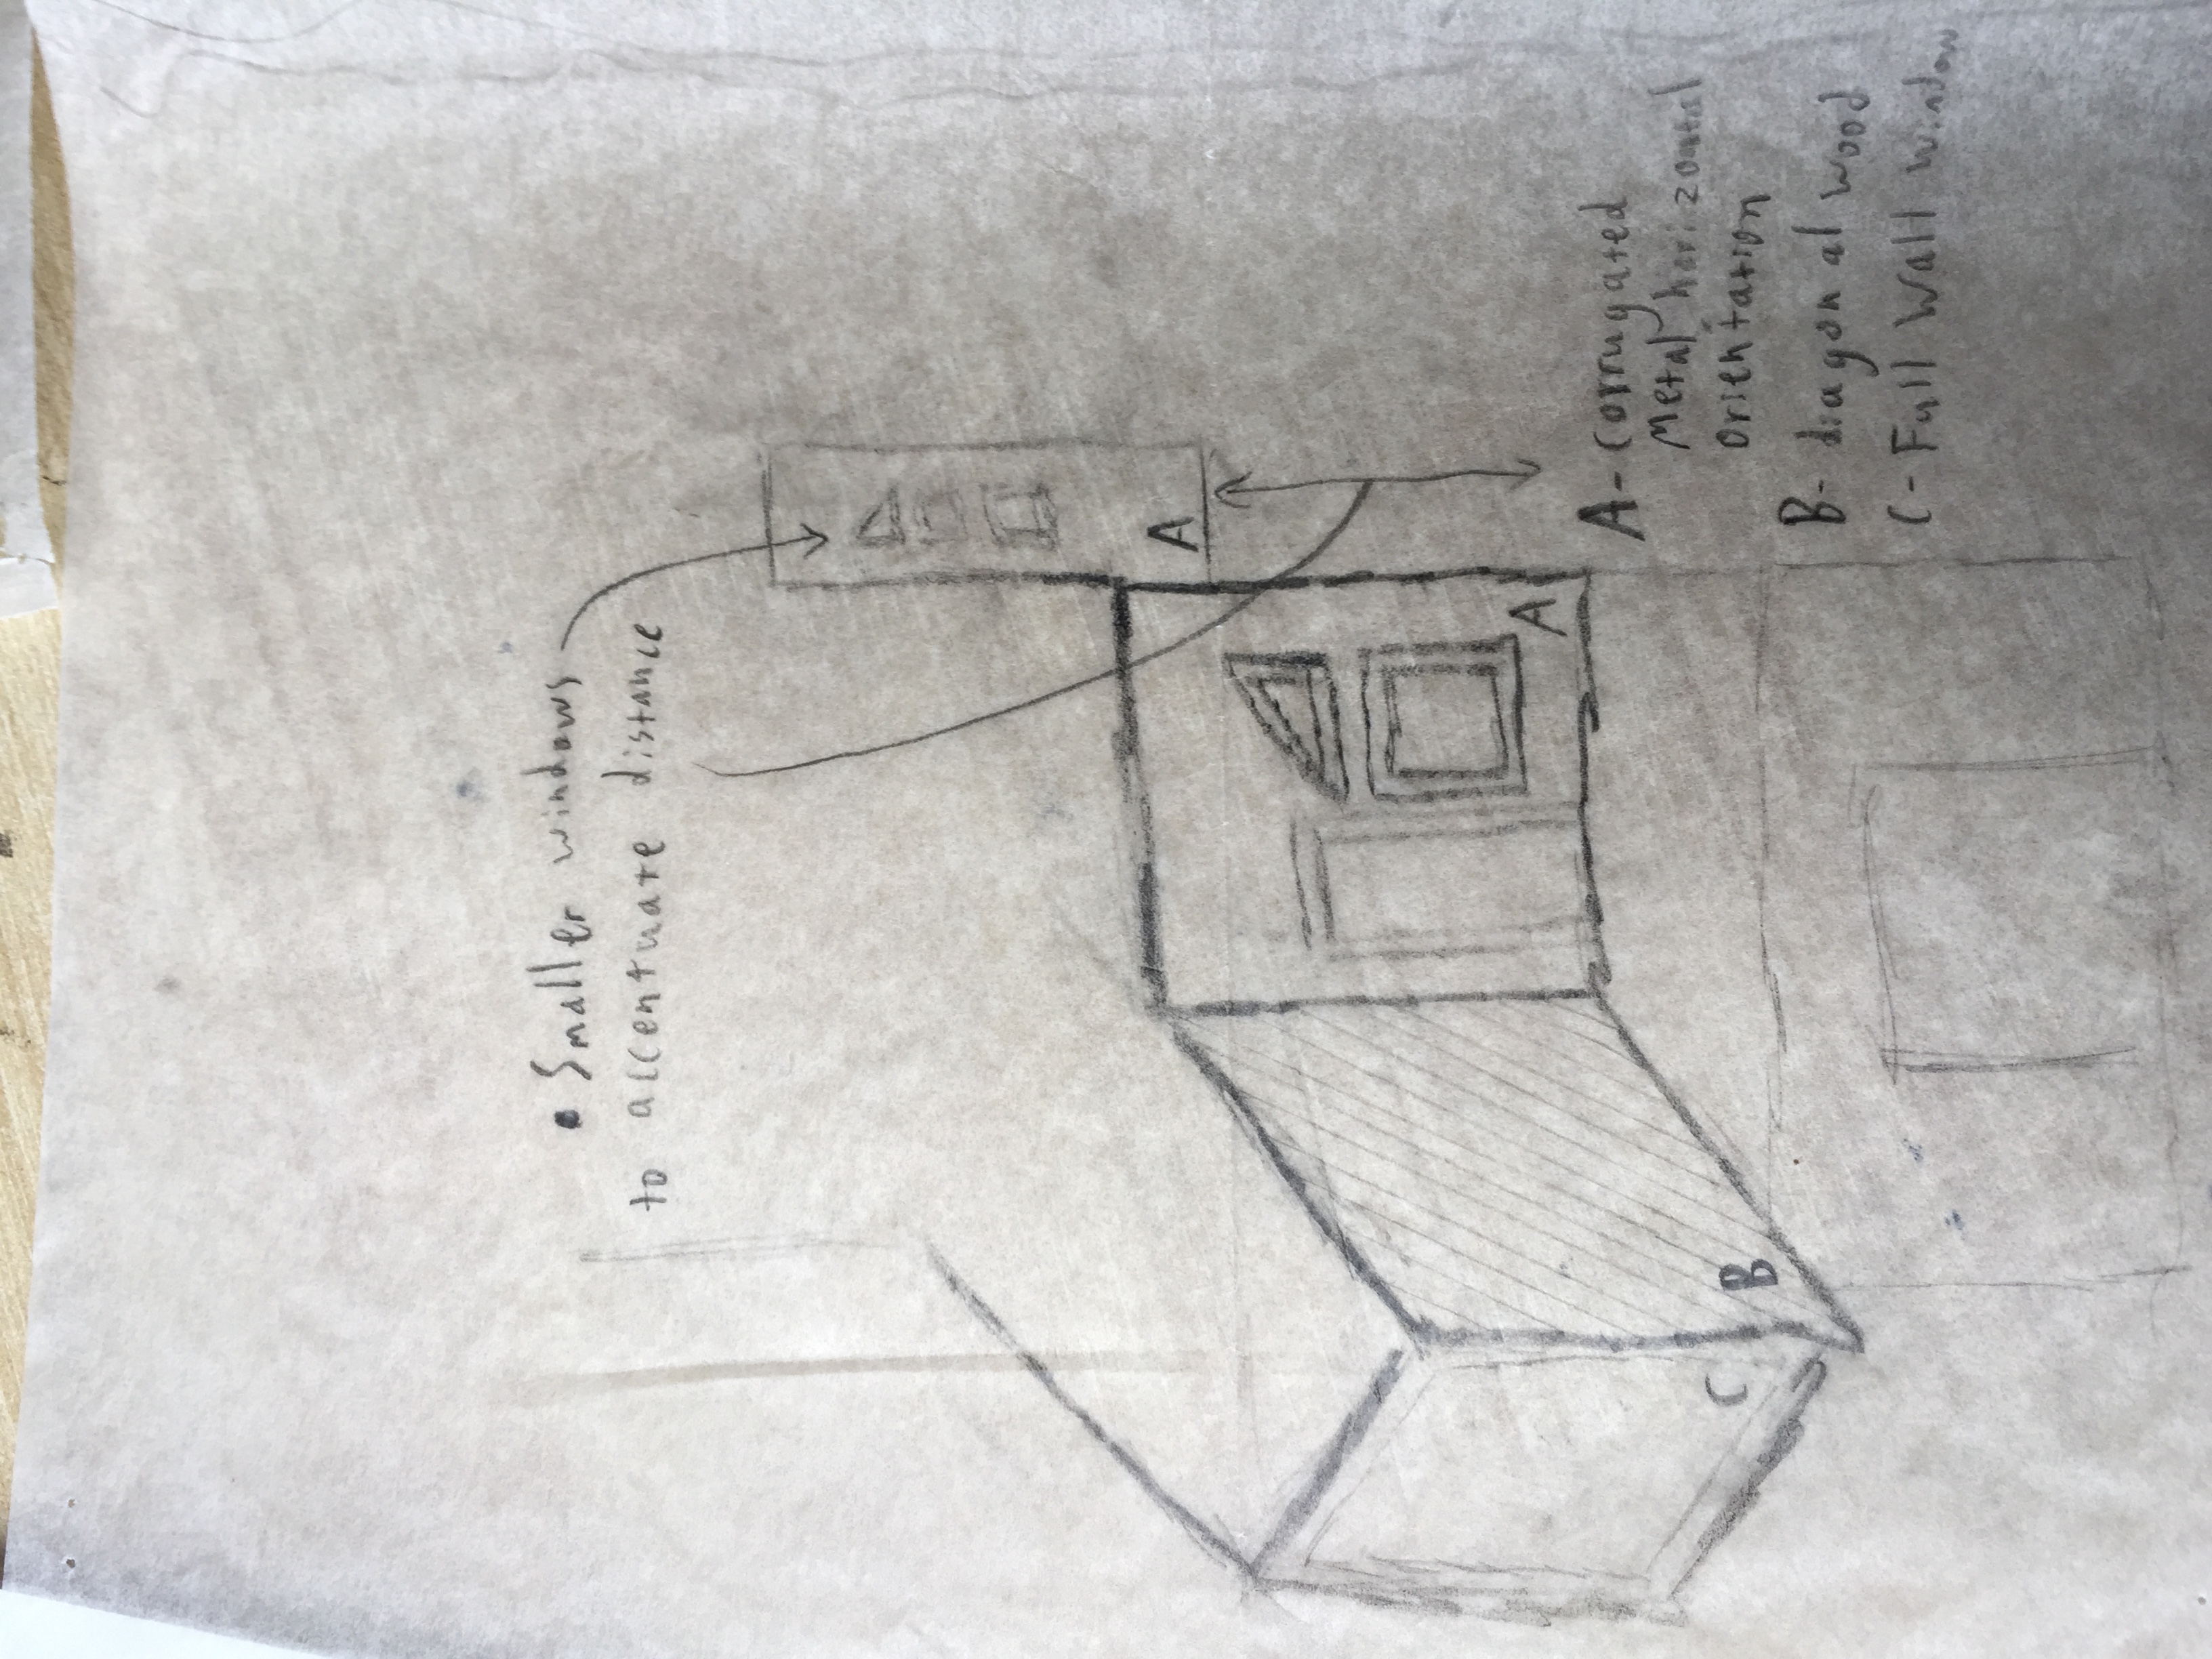 • Smaller windows
to accentuate distance
A
A
B
C
A- Corrugated
Metal horizontal
Orientation
B- diagonal wood
C- Full Wall window